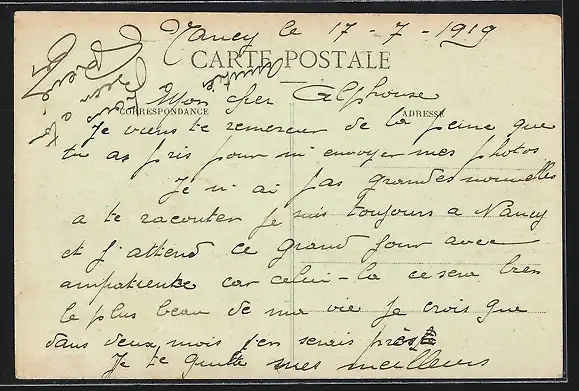 Nancy le 17-7-1919
CARTE POSTALE
Mon cher Alphonse
CORRESPONDANCE
ADRESSE
Je viens te remercier de la peine que
tu as pris pour m'envoyer mes photos
Je n'ai pas grandes nouvelles
a te raconter je suis toujours a Nancy
et j'attend ce grand jour avec
impatience car celui-la ce sera bien
le plus beau de ma vie je crois que
dans deux mois j'en serais près
Je te quitte mes meilleurs